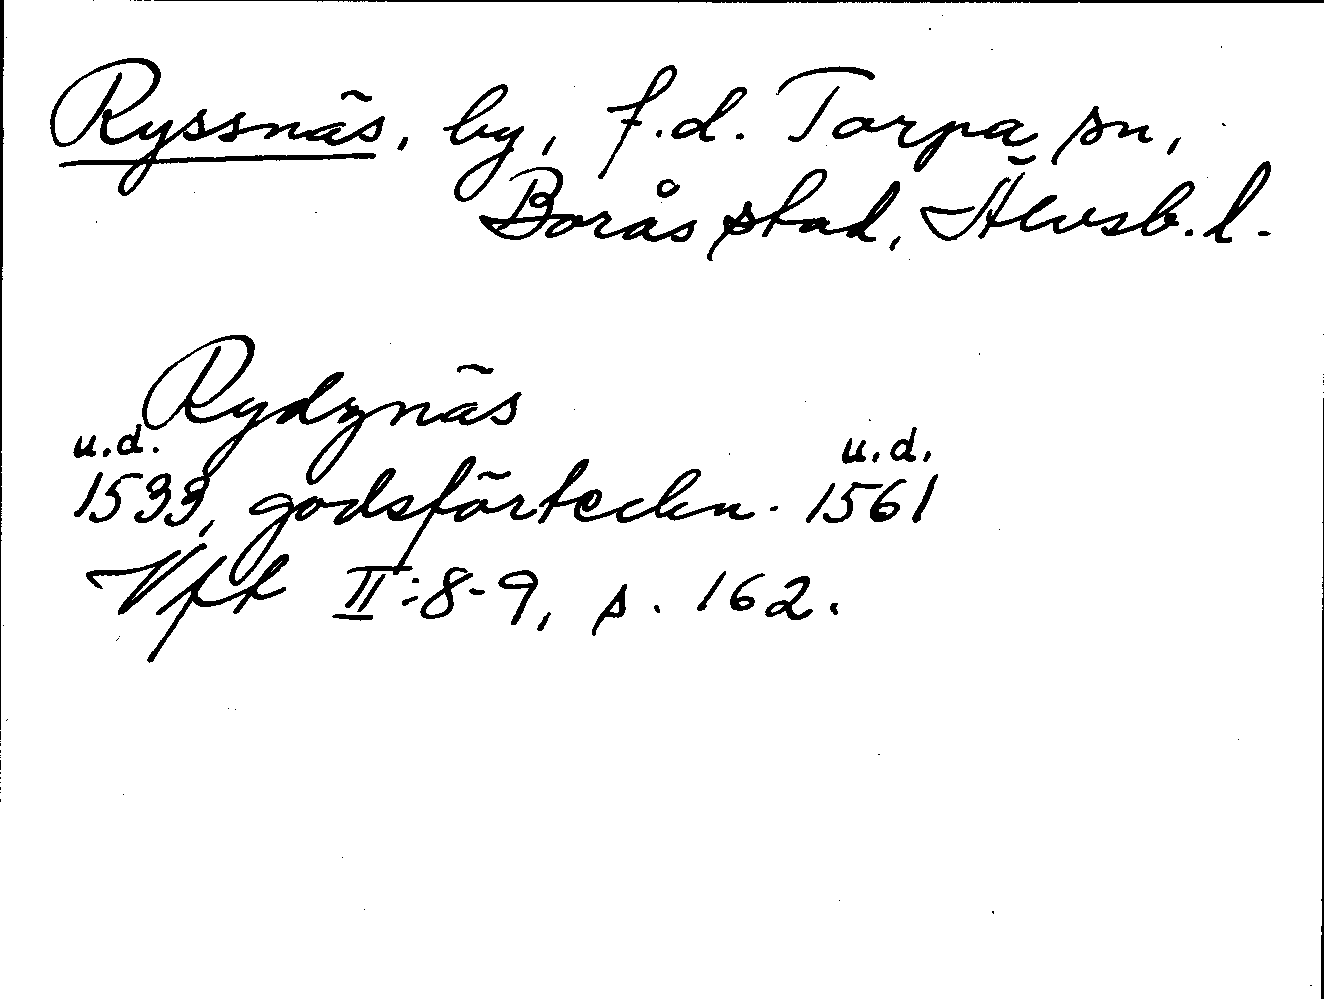 Ryssnäs, by, f.d. Torpa sn,
Borås stad, Älvsb. l.
Rydznäs
u.d. u.d.
1533, godsförteckn. 1561
Vfft II:8-9, s. 162.